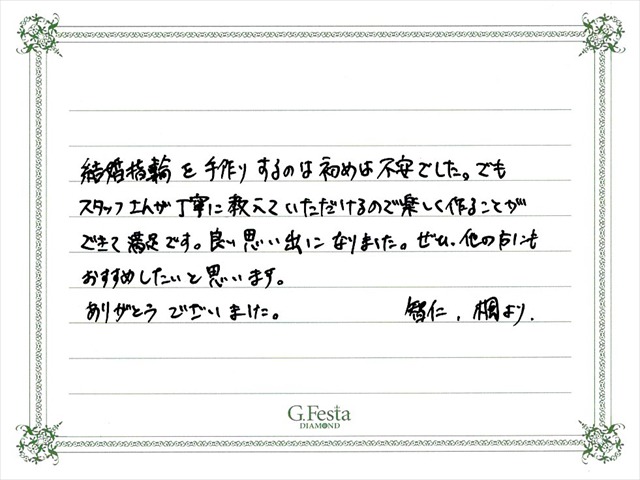 結婚指輪を手作りするのは初めは不安でした。でも
スタッフさんが丁寧に教えていただけるので楽しく作ることが
できて満足です。良い思い出になりました。ぜひ、他の方にも
おすすめしたいと思います。
ありがとうございました。 智仁、楓より.
G.Festa
DIAMOND